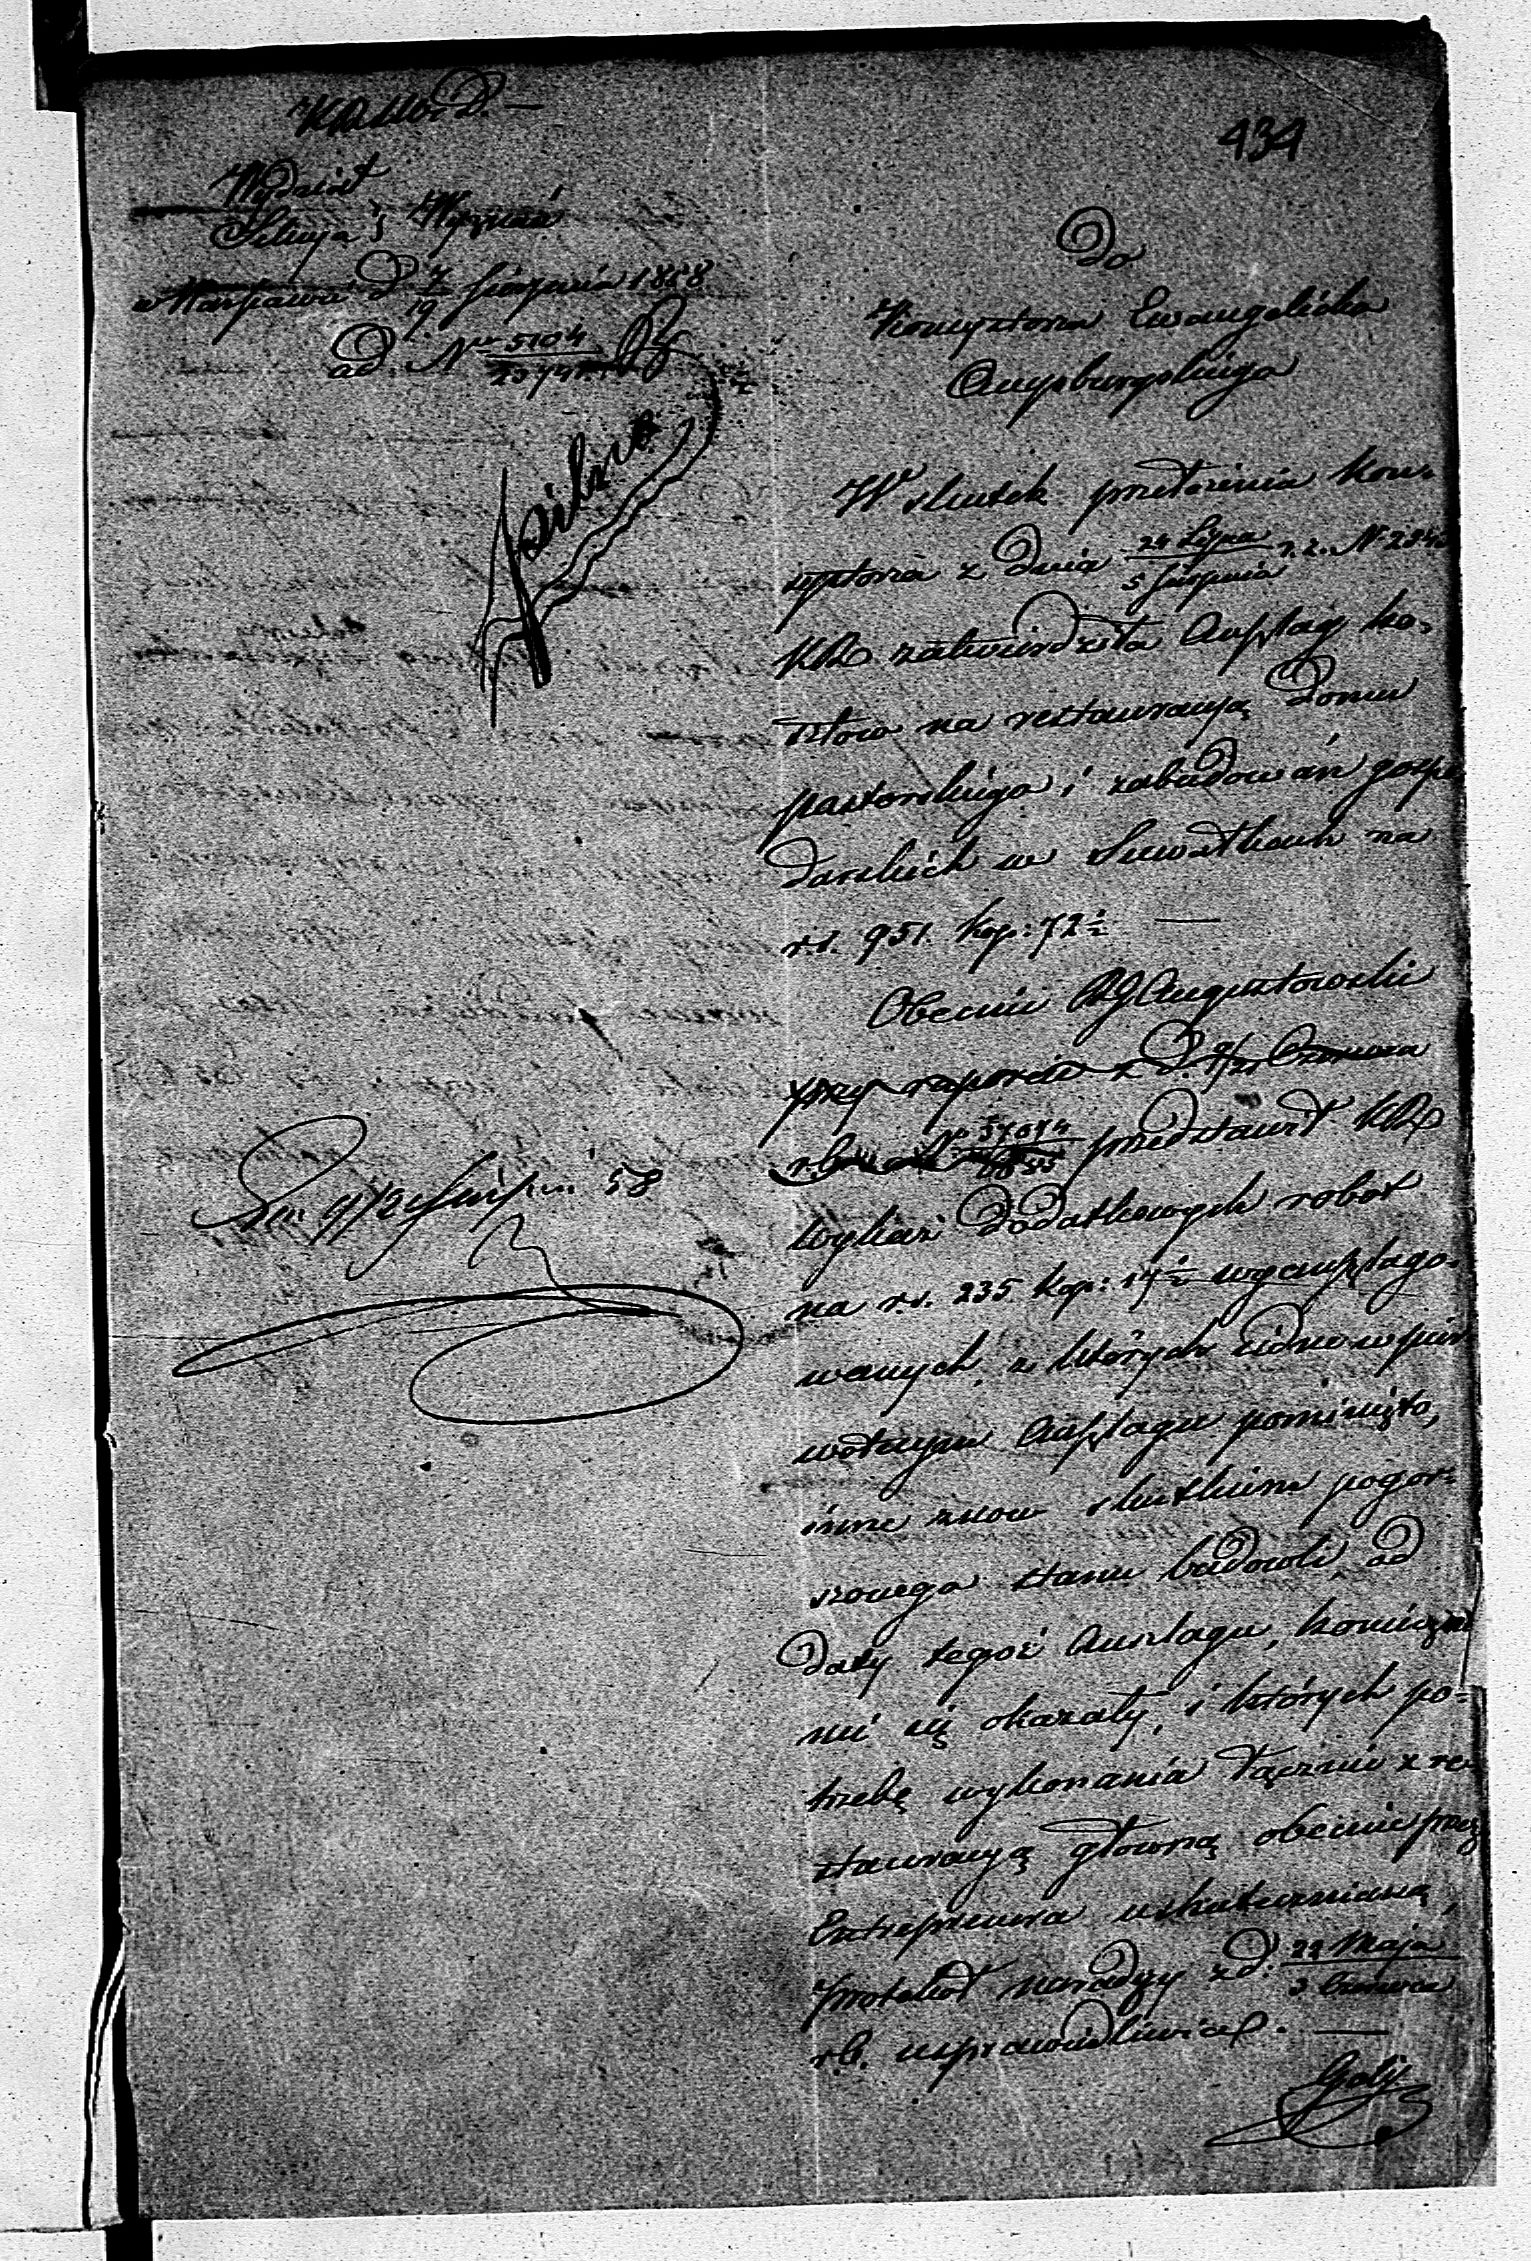 434
Wydział
Sekcya Wyznań
w Warszawie D 7/19 Sierpnia 1858
ad. Nr 5104
Pilne
Do
Konsystorza Ewangelicko
Augsburgskiego
W skutek przełożenia Kon-
systorza z dnia 24 Lipca / 5 Sierpnia r. z. N 284
KR zatwierdziła Anszlag ko-
sztów na restauracyą Domu
pastorskiego i zabudowań gospo
darskich w Suwałkach na
r.s. 951. kop: 72 ½ —
Obecnie RG Augustowski
przy raporcie z D. 9/21 Czerwca
r.b. N 37074 przedstawił KR
wykaz dodatkowych robót
na r.s. 235 kop: 17 ½ wyanszlago-
wanych, z których jedne w pier
wotnym Anszlagu pominięto,
inne znow skutkiem pogor-
szonego stanu budowli, od
daty tegoż Anszlagu, koniecz
się okazały, i których po-
trzebę wykonania łącznie z re-
stauracyą główną obecnie przez
Entreprenera uskutecznianą,
protokół narady z d. 22 Maja / 3 Czerwca
r.b. usprawiedliwia. —
58